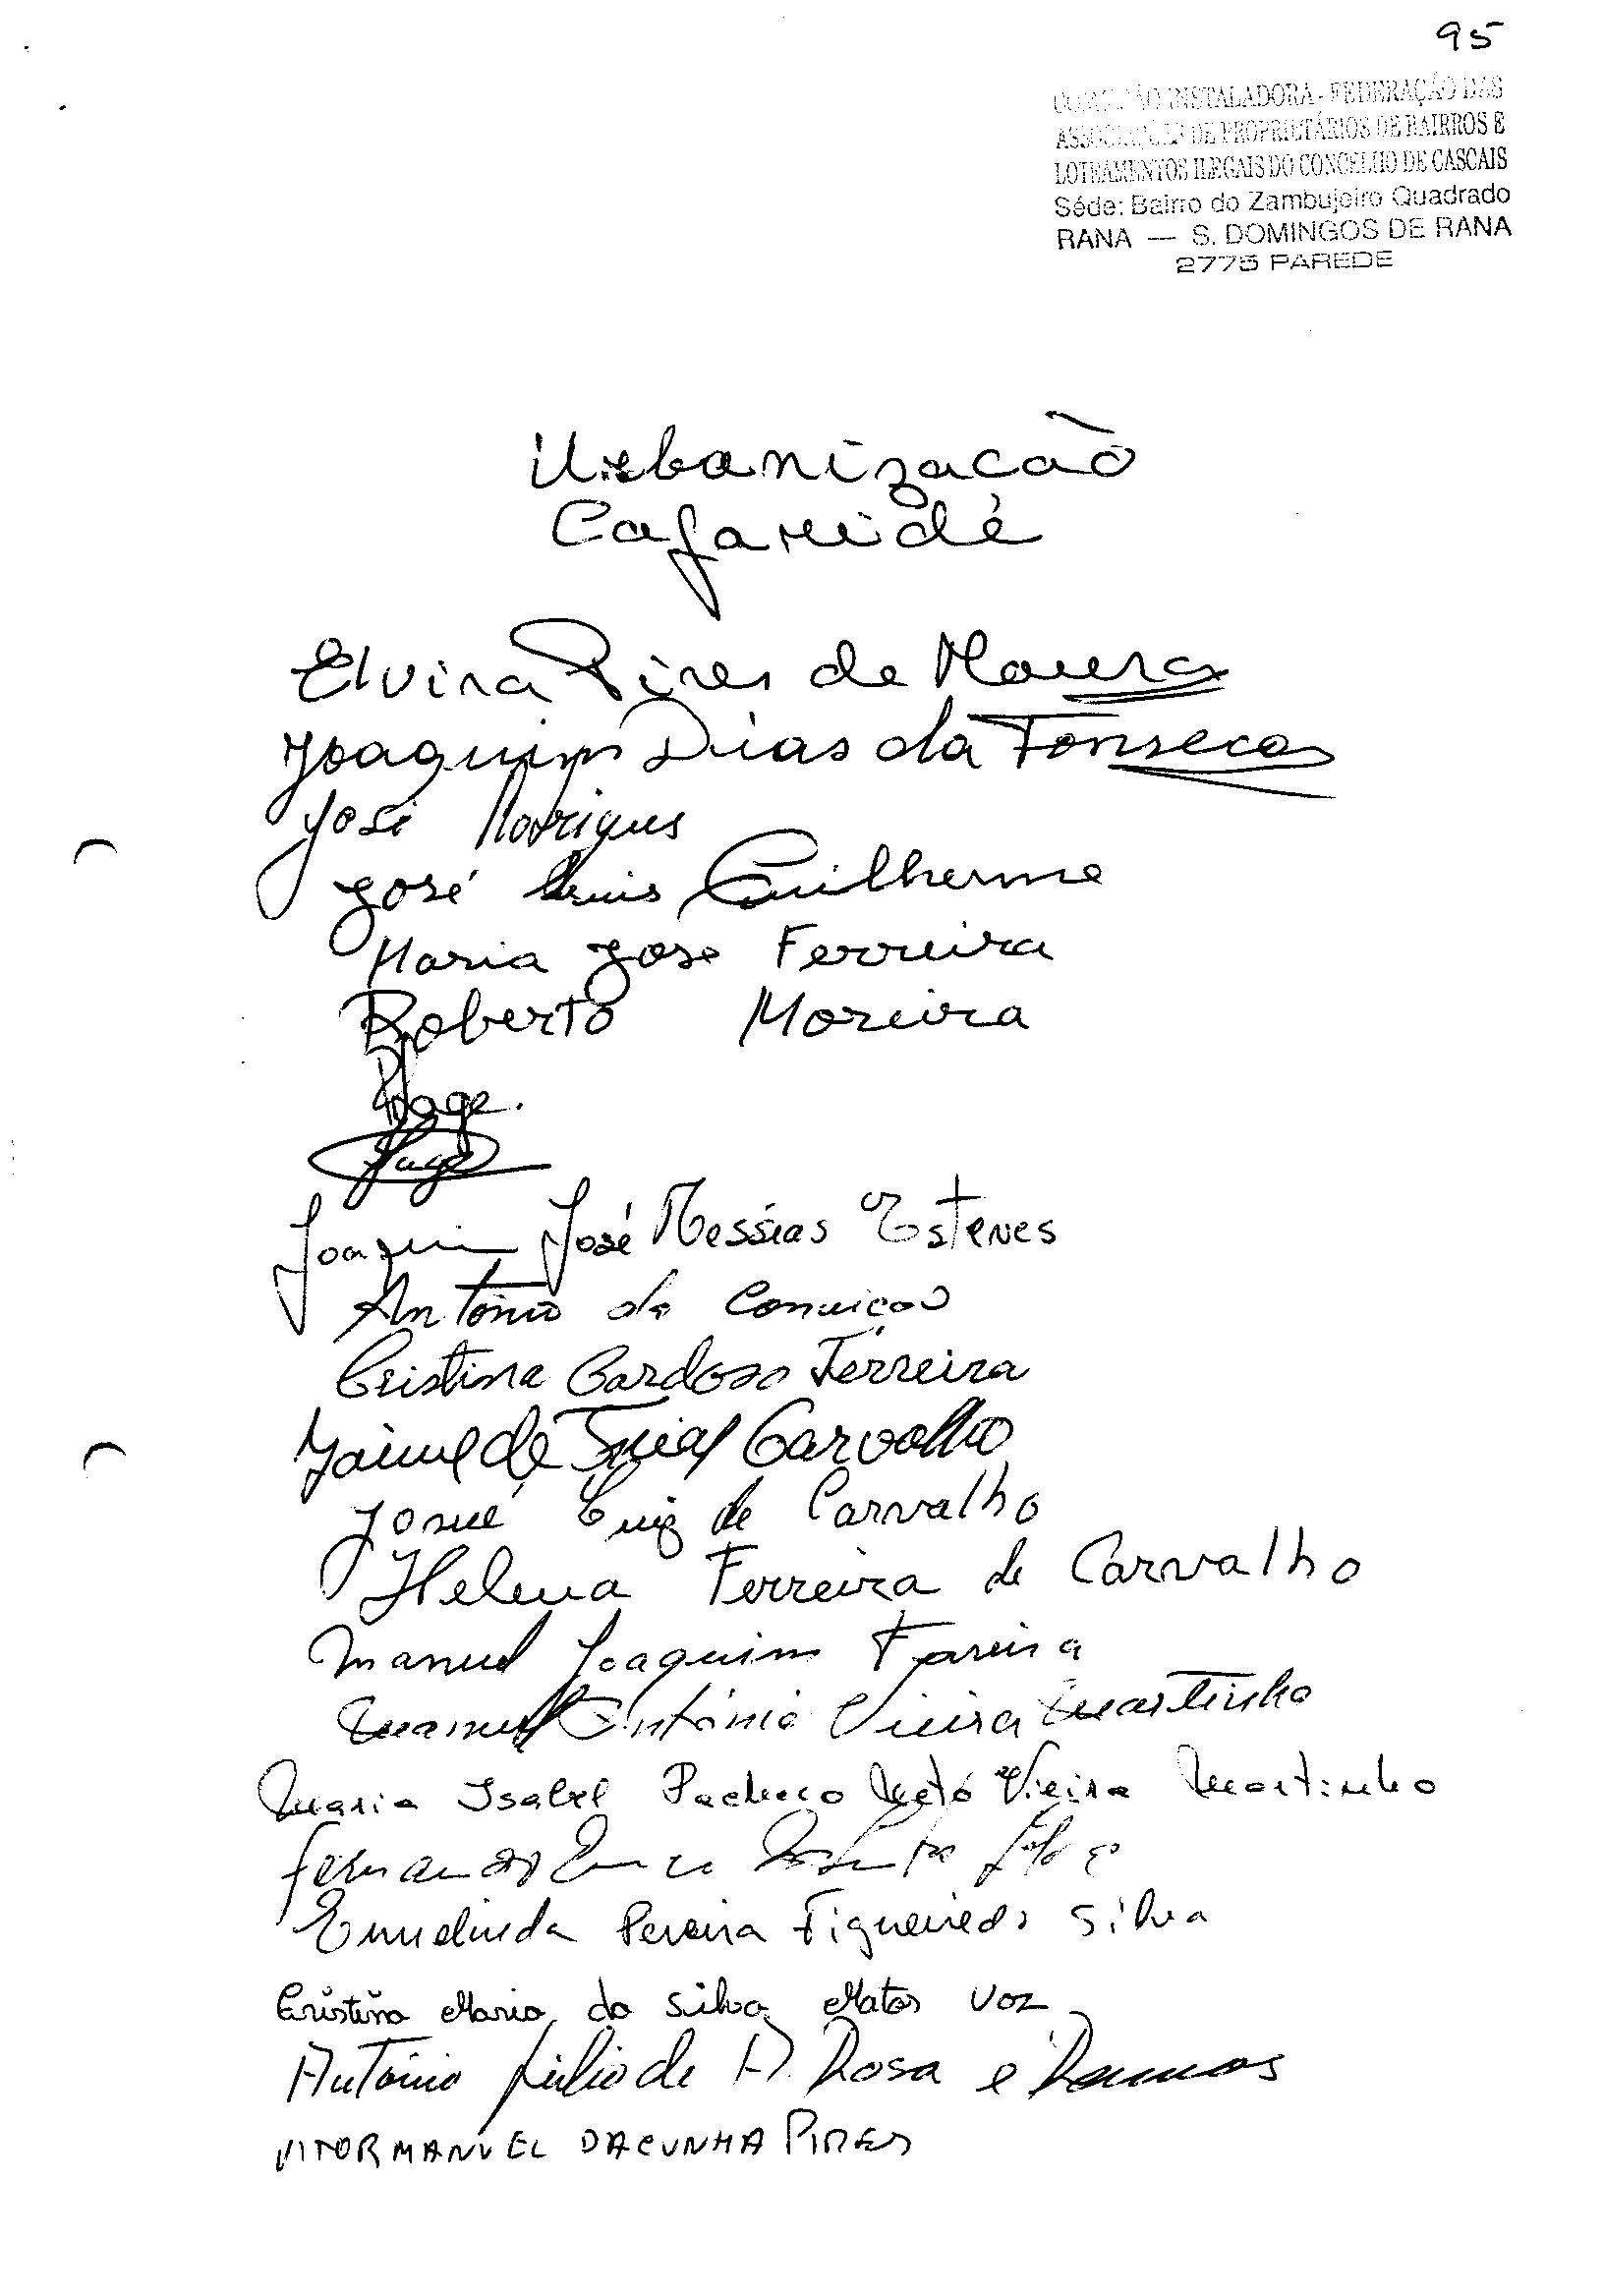 95
COMISSÃO INSTALADORA - FEDERAÇÃO DAS
ASSOCIAÇÕES DE PROPRIETÁRIOS DE BAIRROS E
LOTEAMENTOS ILEGAIS DO CONCELHO DE CASCAIS
Séde: Bairro do Zambujeiro Quadrado
RANA — S. DOMINGOS DE RANA
2775 PAREDE
Urbanização
Elvira Pires de Moura
Joaquim Dias da Fonseca
José Rodrigues
José Luis Guilherme
Maria José Ferreira
Roberto Moreira
Joaquim José Messias Esteves
António da
Cristina Cardoso Ferreira
Jaime de Carvalho
Josué Luiz de Carvalho
Helena Ferreira de Carvalho
Manuel Joaquim
Manuel António Vieira Martinho
Maria Isabel Pacheco Neto Vieira Martinho
Fernando
Ermelinda Pereira Figueiredo Silva
Cristina Maria da Silva Matos Voz
António Júlio de A. Rosa e Ramos
VITOR MANUEL DA CUNHA PIRES